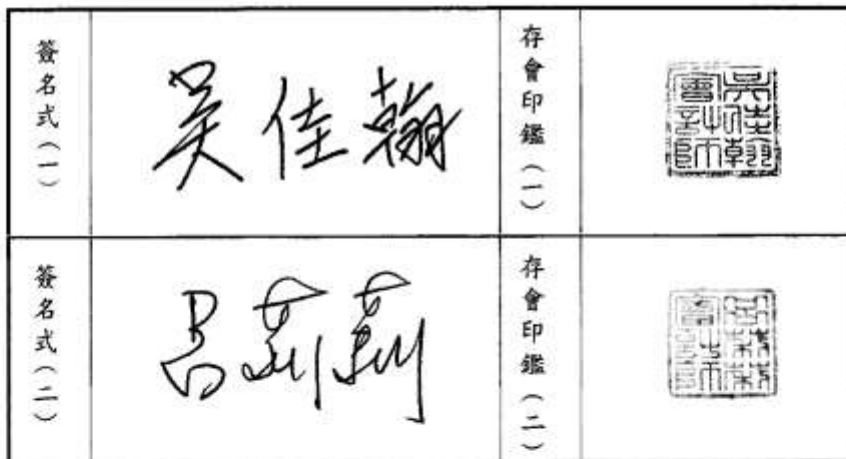 簽名式(一)
吳佳翰
存會印鑑(一)
吳佳翰會計師
簽名式(二)
呂莉莉
存會印鑑(二)